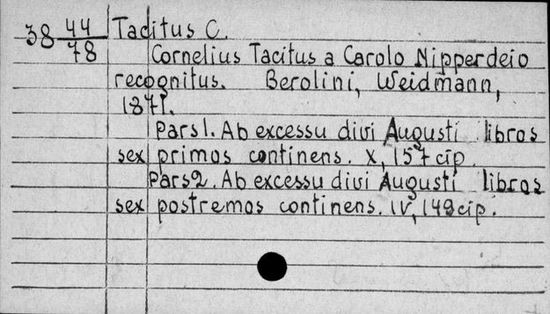 38 44/78 Tacitus C.
Cornelius Tacitus a Carolo Nipperdeio
recognitus. Berolini, Weidmann,
1871.
Pars 1. Ab excessu divi Augusti libros
sex primos continens. X, 157 cip
Pars 2. Ab excessu divi Augusti libros
sex postremos continens. IV, 148 cip.